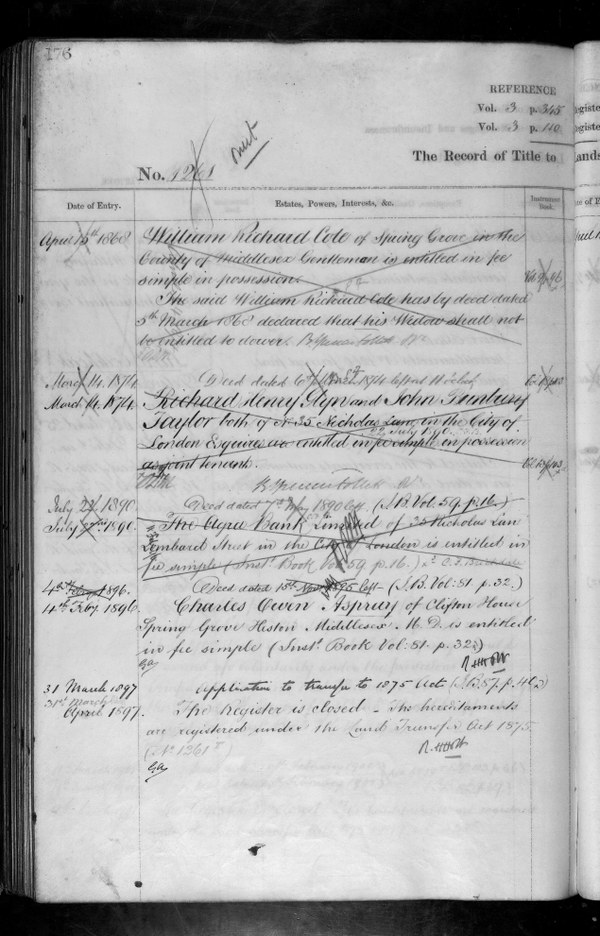 176
REFERENCE
Vol. 3 p. 345
Vol. 3 p. 110
The Record of Title to
No. 1261
Date of Entry.
Estates, Powers, Interests, &c.
Instrument Book.
April 15th 1868
William Richard Cole of Spring Grove in the
County of Middlesex Gentleman is entitled in fee
simple in possession.
The said William Richard Cole has by deed dated
5th March 1868 declared that his Widow shall not
be entitled to dower.
March 14. 1874
Deed dated
March 14. 1874
Richard Henry Glyn and John
Taylor both of No 35 Nicholas Lane in the City of
London Esquires are entitled in fee simple in possession
as joint tenants.
July 29. 1890
Deed dated 7th May 1890 left (I.B. Vol. 59. p. 16.)
July 1890.
The Agra Bank Limited of 35 Nicholas Lane
Lombard Street in the City of London is entitled in
fee simple (Inst. Book Vol. 59 p. 16.)
4th Feby 1896.
Deed dated 15th Nov. 1895 left (I.B. Vol: 81. p. 32.)
4th Feby 1896
Charles Owen Asprey of Clifton House
Spring Grove Heston Middlesex M.D. is entitled
in fee simple (Inst. Book Vol: 81. p. 32.)
31 March 1897
Application to transfer to 1875 Act
31st March
April 1897.
The Register is closed - The hereditaments
are registered under the Land Transfer Act 1875.
(No 1261